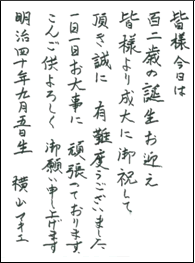 皆様今日は
百二歳の誕生お迎え
皆様より成大に御祝して
頂き誠に 有難度うございました
一日一日お大事に 頑張っております
こんご供よろしく 御願い申し上げます
明治四十年九月五日生 横山アキエ